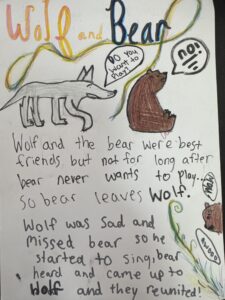 Wolf and Bear
Do you
want to
play?
no!
Wolf and the bear were best
friends but not for long after
bear never wants to play...
So bear leaves Wolf.
Hello
Wolf was sad and
missed bear so he
started to sing, bear
heard and came up to
Wolf and they reunited!